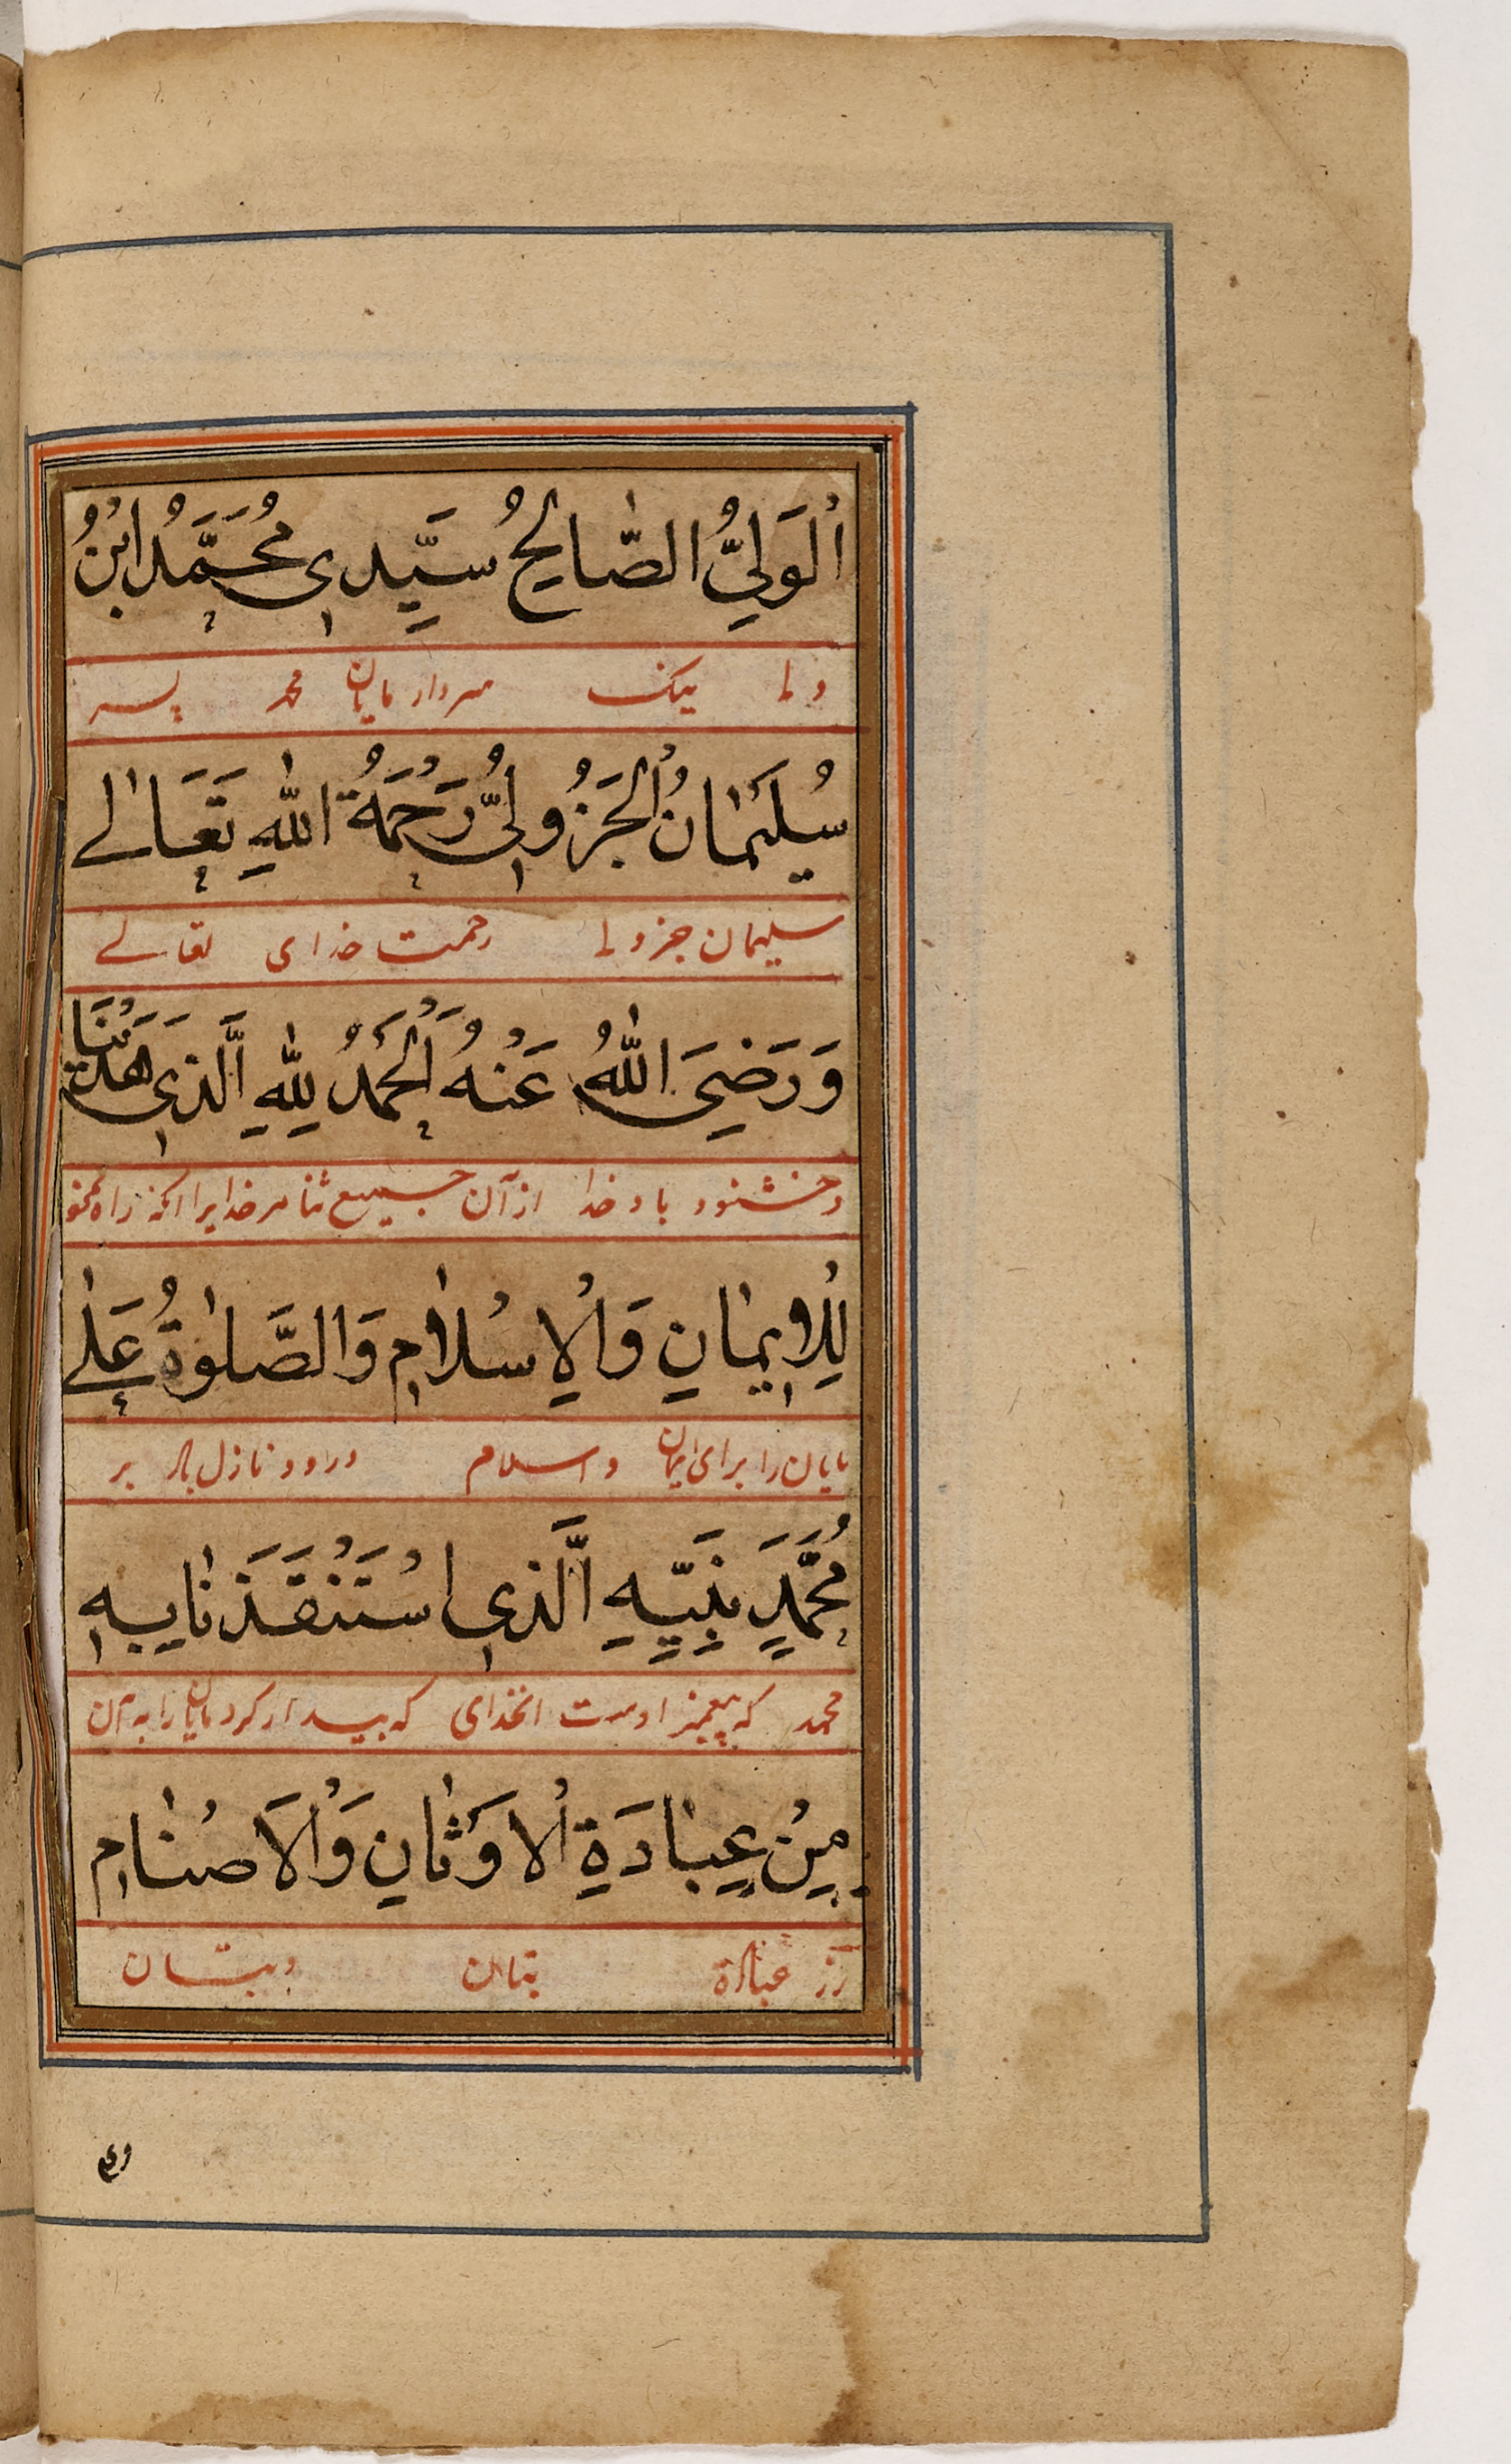 اَلْوَلِيُّ الصَّالِحُ سَيِّدِي مُحَمَّدُ ابْنُ
ولی نیک سردار مایان محمد پسر
سُلَيْمَانُ الْجَزُولِيُّ رَحْمَةُ اللّٰهِ تَعَالٰے
سلیمان جزولی رحمت خدای تعالے
وَرَضِيَ اللّٰهُ عَنْهُ اَلْحَمْدُ لِلّٰهِ الَّذِي هَدَنَا
وخشنود باد خدا از آن جمیع ثنا مر خدایرا آنکه راه نمو
لِلْاِيمَانِ وَالْاِسْلَامِ وَالصَّلٰوةُ عَلٰے
مایان را برای ایمان واسلام ودرود نازل باد بر
مُحَمَّدٍ نَبِيِّهِ الَّذِي اسْتَنْقَذَنَا بِهِ
محمد که پیغمبر اوست انخدای که بیدار کرد مایان را به آن
مِنْ عِبَادَةِ الْاَوْثَانِ وَالْاَصْنَامِ
از عبادة بتان وبتان